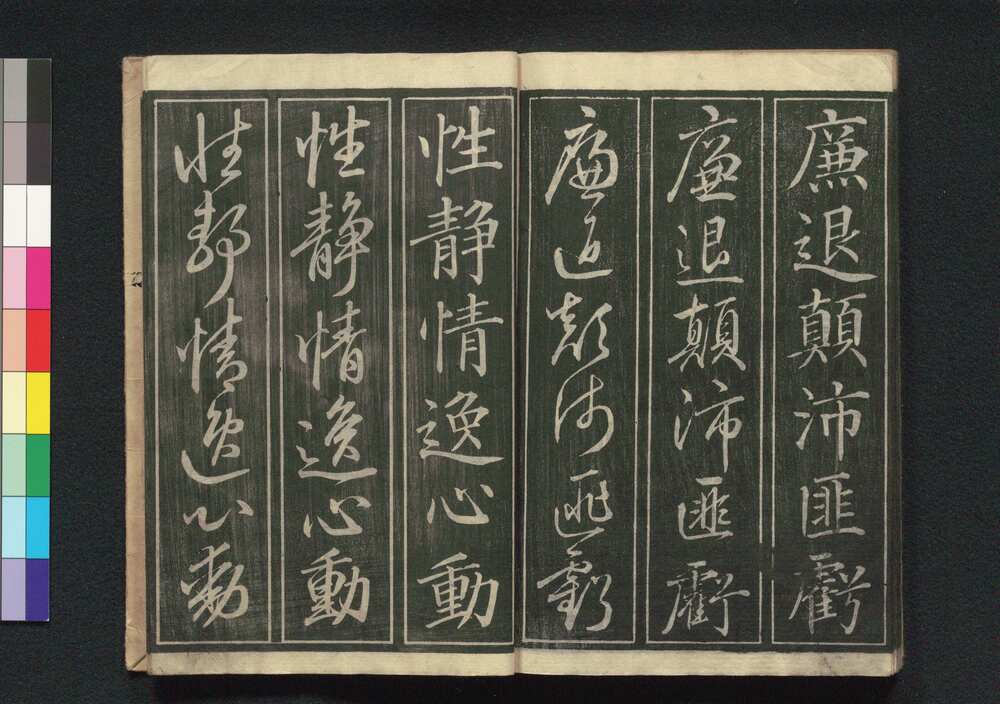 廉退顛沛匪虧
廉退顛沛匪虧
廉退顛沛匪虧
性静情逸心動
性静情逸心動
性静情逸心動